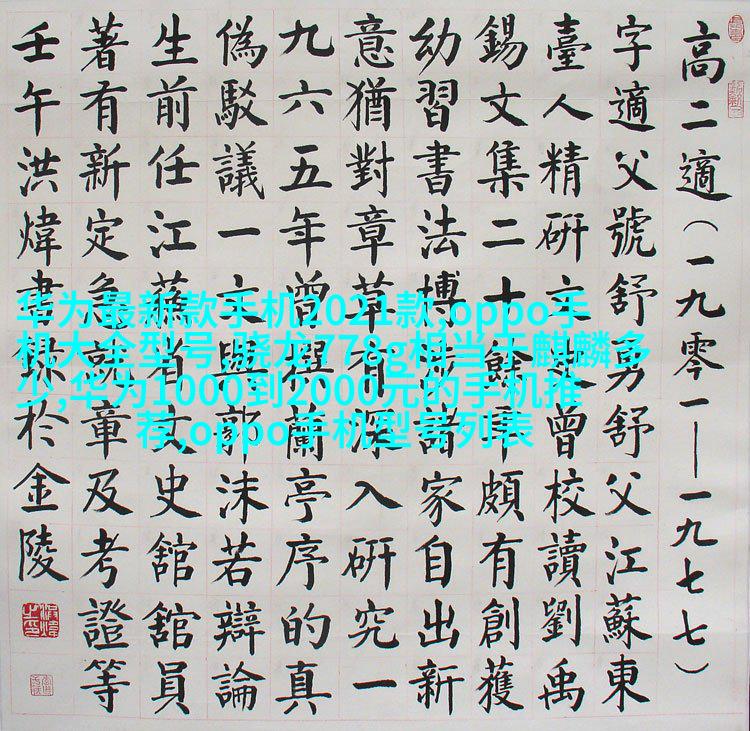 高二適（一九零一——一九七七）
字適父號舒勇舒父江蘇東
臺人精研文史曾校讀劉禹
錫文集二十餘年頗有創獲
幼習書法博涉諸家自出新
意猶對章草有深入研究一
九六五年曾撰蘭亭序的真
偽駁議一文與郭沫若辯論
生前任江蘇省文史館館員
著有新定急就章及考證等
壬午洪煒書錄於金陵
华为最新款手机2021款,oppo手
机大全型号,骁龙778g相当于麒麟多
少,华为1000到2000元的手机推
荐,oppo手机型号列表